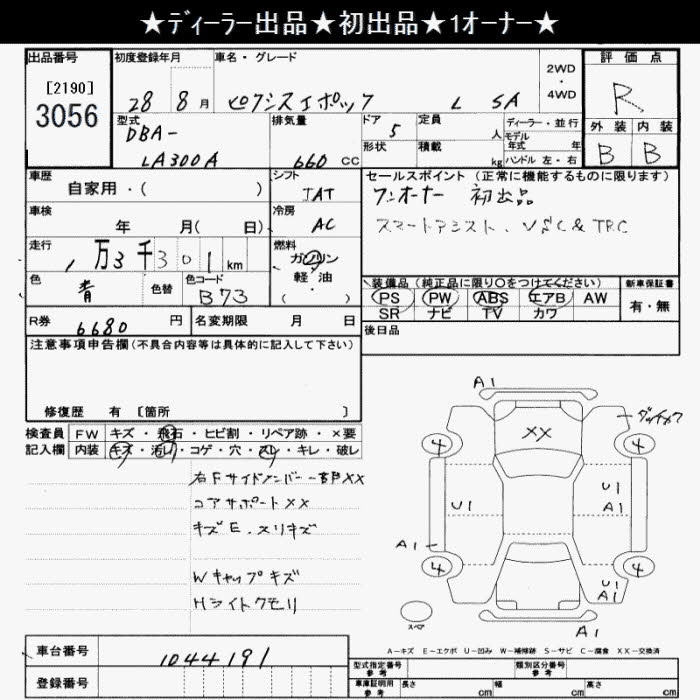 ★ディーラー出品★初出品★1オーナー★
出品番号
[2190]
3056
初度登録年月
28年 8月
車名・グレード
ピクシスエポック L SA
2WD
・
4WD
評価点
R
外装 内装
B B
型式
DBA-
LA300A
排気量
660 CC
ドア
5
形状
定員
人
積載
kg
ディーラー・並行
モデル
年式 年
ハンドル 左・右
車歴
自家用・( )
シフト
IAT
車検
年 月( 日)
冷房
AC
走行
1万3千301km
燃料
ガソリン
軽・油
( )
色
青
色替
色コード
B73
R券
6680円
名変期限 月 日
セールスポイント (正常に機能するものに限ります)
ワンオーナー 初出品
スマートアシスト、VSC&TRC
装備品(純正品に限り○をつけてください)
PS PW ABS エアB AW
SR ナビ TV カワ
新車保証書
有・無
後日品
注意事項申告欄(不具合内容等は具体的に記入して下さい)
修復歴 有 [箇所 ]
検査員
記入欄
FW キズ・飛石・ヒビ割・リペア跡・×要
内装 キズ・汚レ・コゲ・穴・スレ・キレ・破レ
右Fサイドメンバー一部XX
コアサポートXX
キズE、スリキズ
Wキャップキズ
Hライトクモリ
A1
XX
4 4
U1
U1
A1
A1
4 4
U1
A1
スペア
A1
A-キズ E-エクボ U-凹み W-補修跡 S-サビ C-腐食 XX-交換済
車台番号
1044191
登録番号
型式指定番号
参考
類別区分番号
参考
車庫証明用
参考
長さ cm
幅 cm
高さ cm